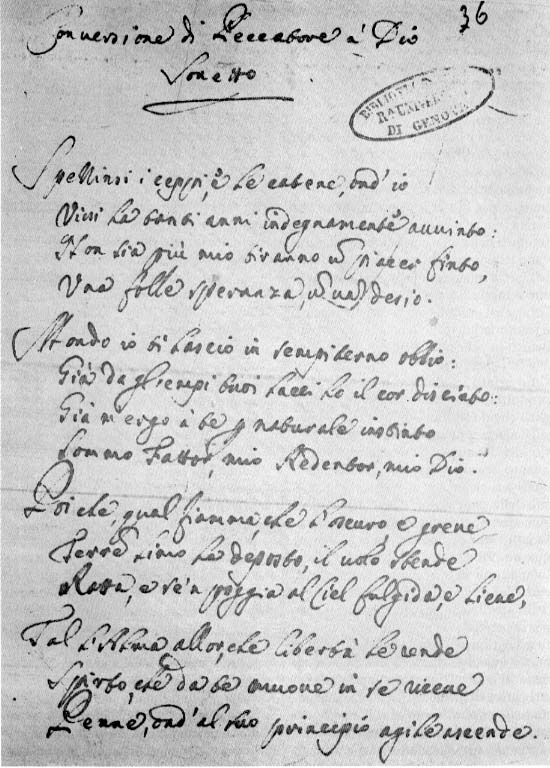 36
Conversione di Peccatore à Dio
Sonetto
BIBLIOTECA
R. UNIVERSIT
DI GENOVA
Spezzinsi i ceppi, è le catene, ond' io
Vissi tanti anni indegnamente avvinto:
Non sia più mio tiranno un piacer finto,
Una folle speranza, un van desio.
Mondo io ti lascio in sempiterno oblio:
Già da gl'empi tuoi lacci hò il cor discinto:
Già m'ergo à te p naturale instinto
Sommo Fattor, mio Redentor, mio Dio.
Poiche, qual fiamma, che l'oscuro, e greve
Terren limo hà deposto, il volo stende
Ratta, e se'n poggia al Ciel fulgida, e lieve,
Tal l'Alma allor, che libertà le rende
Spirto, che da te muove in se riceve
Penne, ond' al suo principio agile ascende.